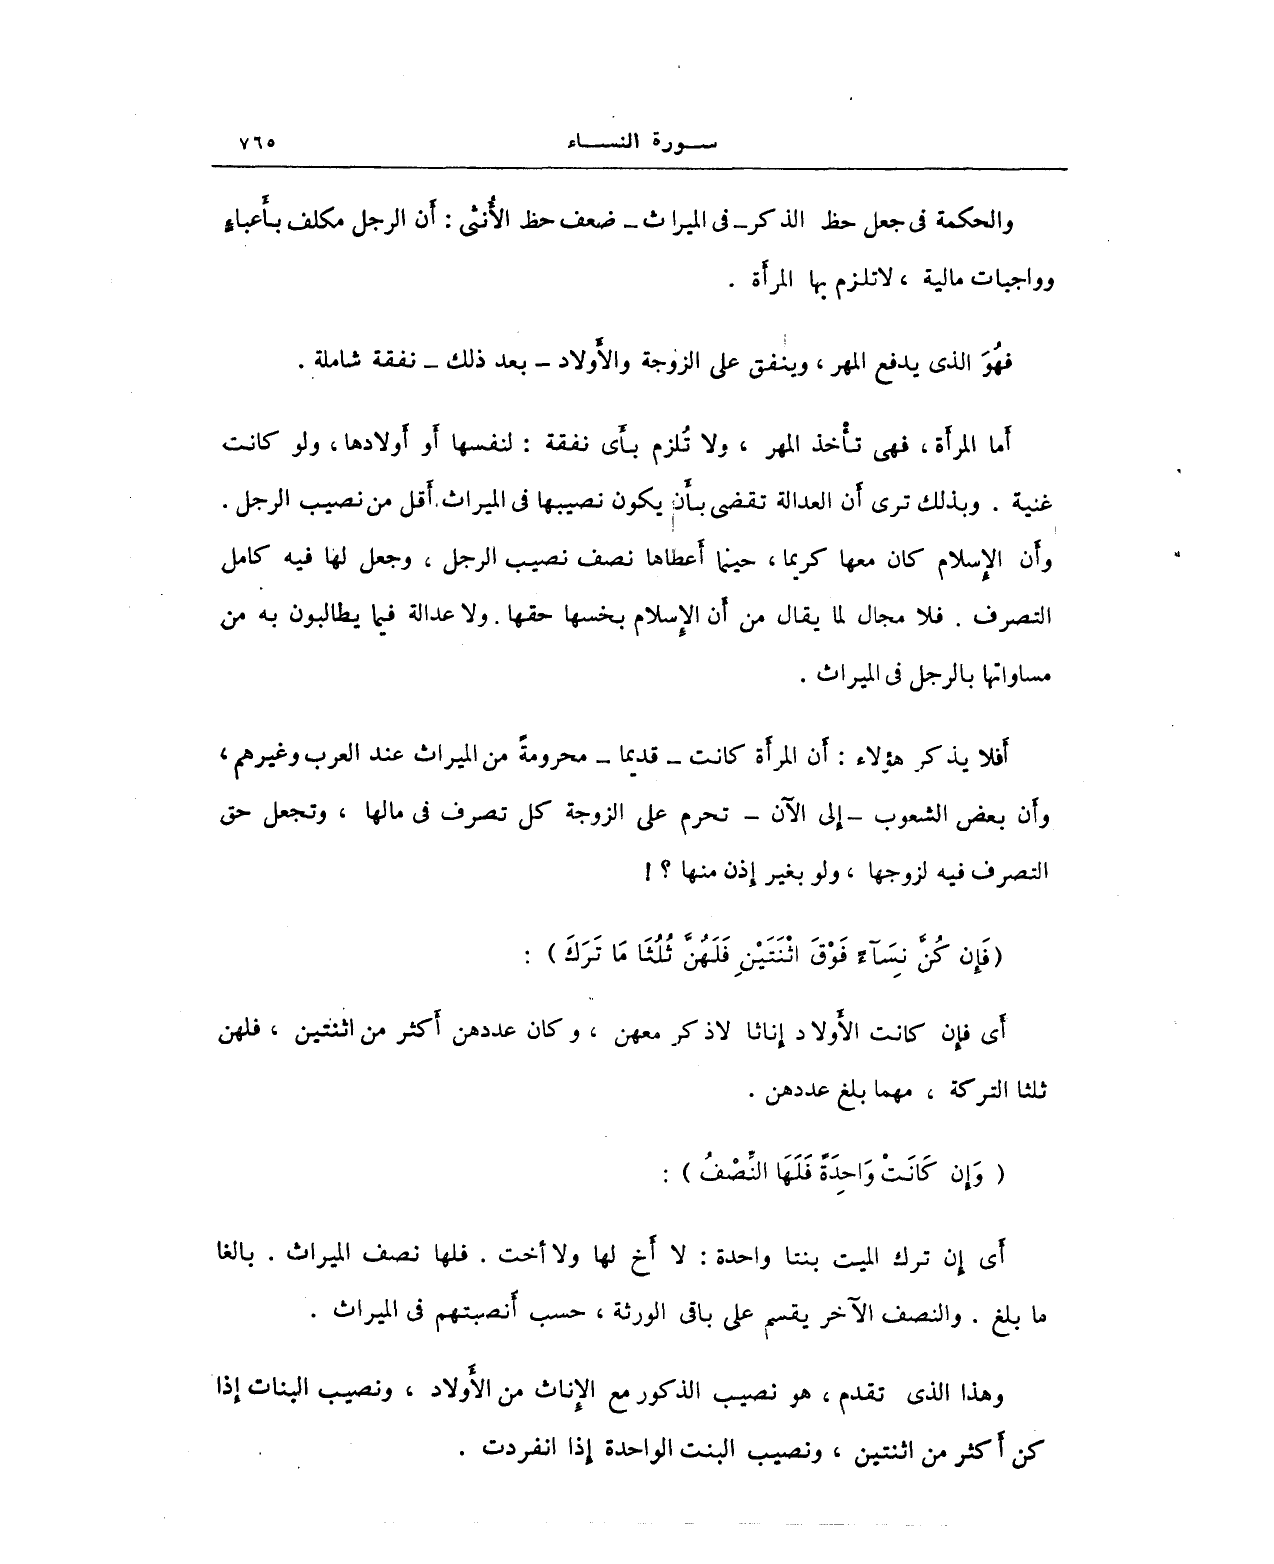 سورة النساء ٧٦٥
والحكمة فى جعل حظ الذكر ـ فى الميراث ـ ضعف حظ الأُنثى : أَن الرجل مكلف بأَعباءِ
وواجبات مالية ، لاتلزم بها المرأَة .
فهُوَ الذى يدفع المهر ، وينفق على الزوجة والأَولاد ـ بعد ذلك ـ نفقة شاملة .
أَما المرأَة ، فهى تأْخذ المهر ، ولا تُلزم بأَى نفقة : لنفسها أَو أَولادها ، ولو كانت
غنية . وبذلك ترى أَن العدالة تقضى بأَن يكون نصيبها فى الميراث أَقل من نصيب الرجل .
وأَن الإِسلام كان معها كريما ، حينما أَعطاها نصف نصيب الرجل ، وجعل لها فيه كامل
التصرف . فلا مجال لما يقال من أَن الإِسلام بخسها حقها . ولا عدالة فيما يطالبون به من
مساواتها بالرجل فى الميراث .
أَفلا يذكر هؤلاء : أَن المرأَة كانت ـ قديما ـ محرومةً من الميراث عند العرب وغيرهم ،
وأَن بعض الشعوب ـ إِلى الآن ـ تحرم على الزوجة كل تصرف فى مالها ، وتجعل حق
التصرف فيه لزوجها ، ولو بغير إِذن منها ؟ !
( فَإِن كُنَّ نِسَآءً فَوْقَ اثْنَتَيْنِ فَلَهُنَّ ثُلُثَا مَا تَرَكَ ) :
أَى فإِن كانت الأَولاد إِناثا لاذكر معهن ، وكان عددهن أَكثر من اثنتين ، فلهن
ثلثا التركة ، مهما بلغ عددهن .
( وَإِن كَانَتْ وَاحِدَةً فَلَهَا النِّصْفُ ) :
أَى إِن ترك الميت بنتا واحدة : لا أَخ لها ولا أخت . فلها نصف الميراث . بالغا
ما بلغ . والنصف الآخر يقسم على باقى الورثة ، حسب أَنصبتهم فى الميراث .
وهذا الذى تقدم ، هو نصيب الذكور مع الإِناث من الأَولاد ، ونصيب البنات إِذا
كن أَكثر من اثنتين ، ونصيب البنت الواحدة إِذا انفردت .